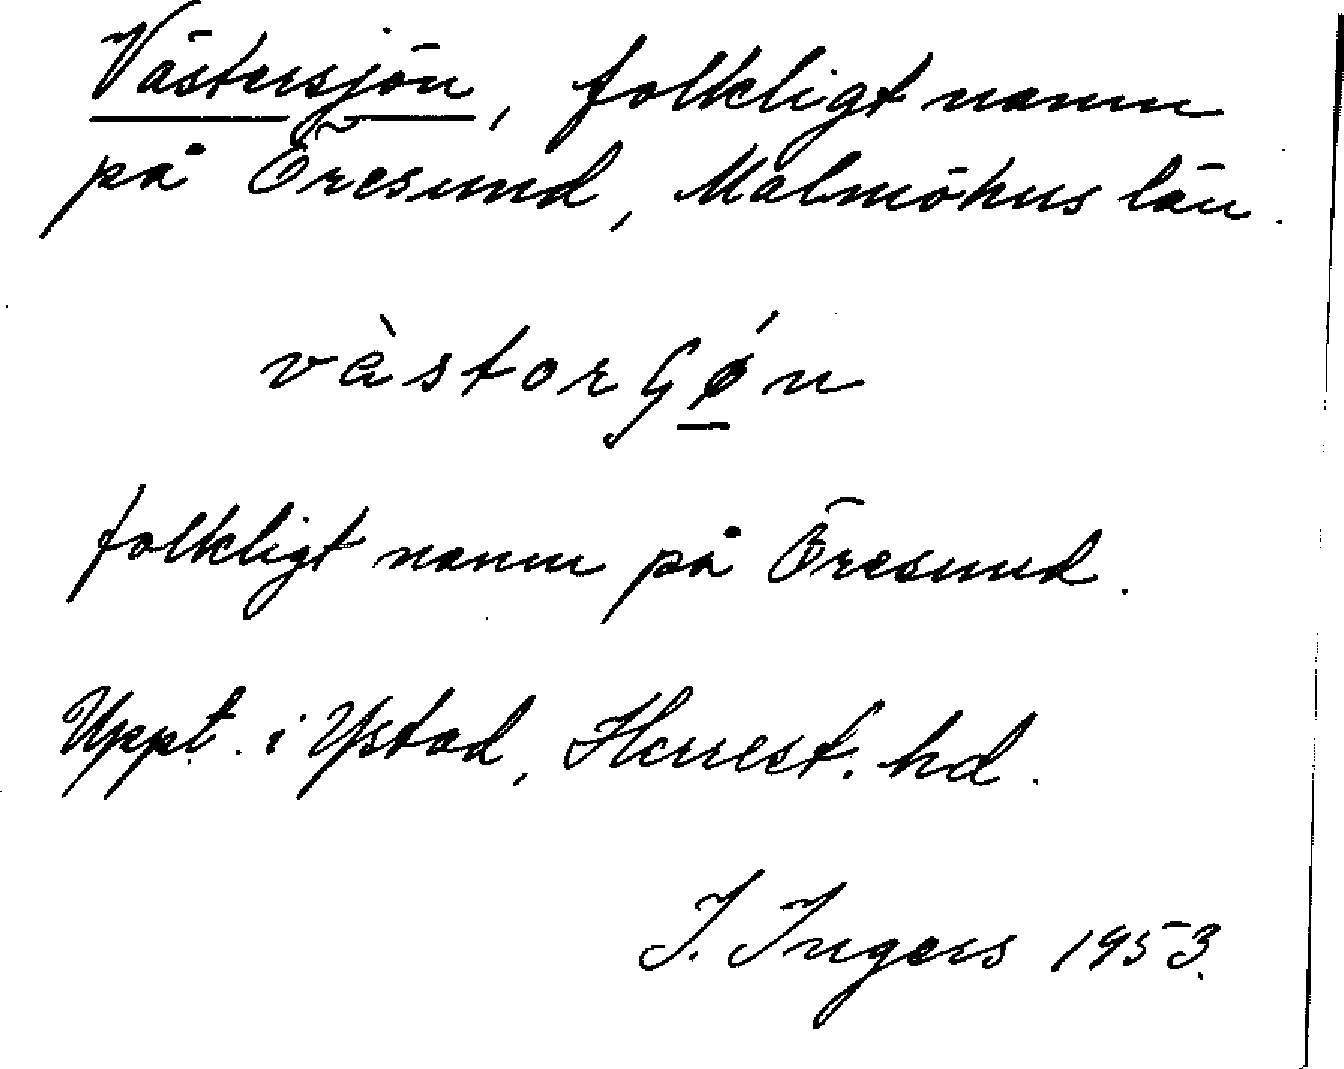 Västersjön, folkligt namn
på Öresund, Malmöhus län.
vàstorʂǿn
folkligt namn på Öresund.
Uppt. i Ystad, Herrest. hd.
I. Ingers 1953.